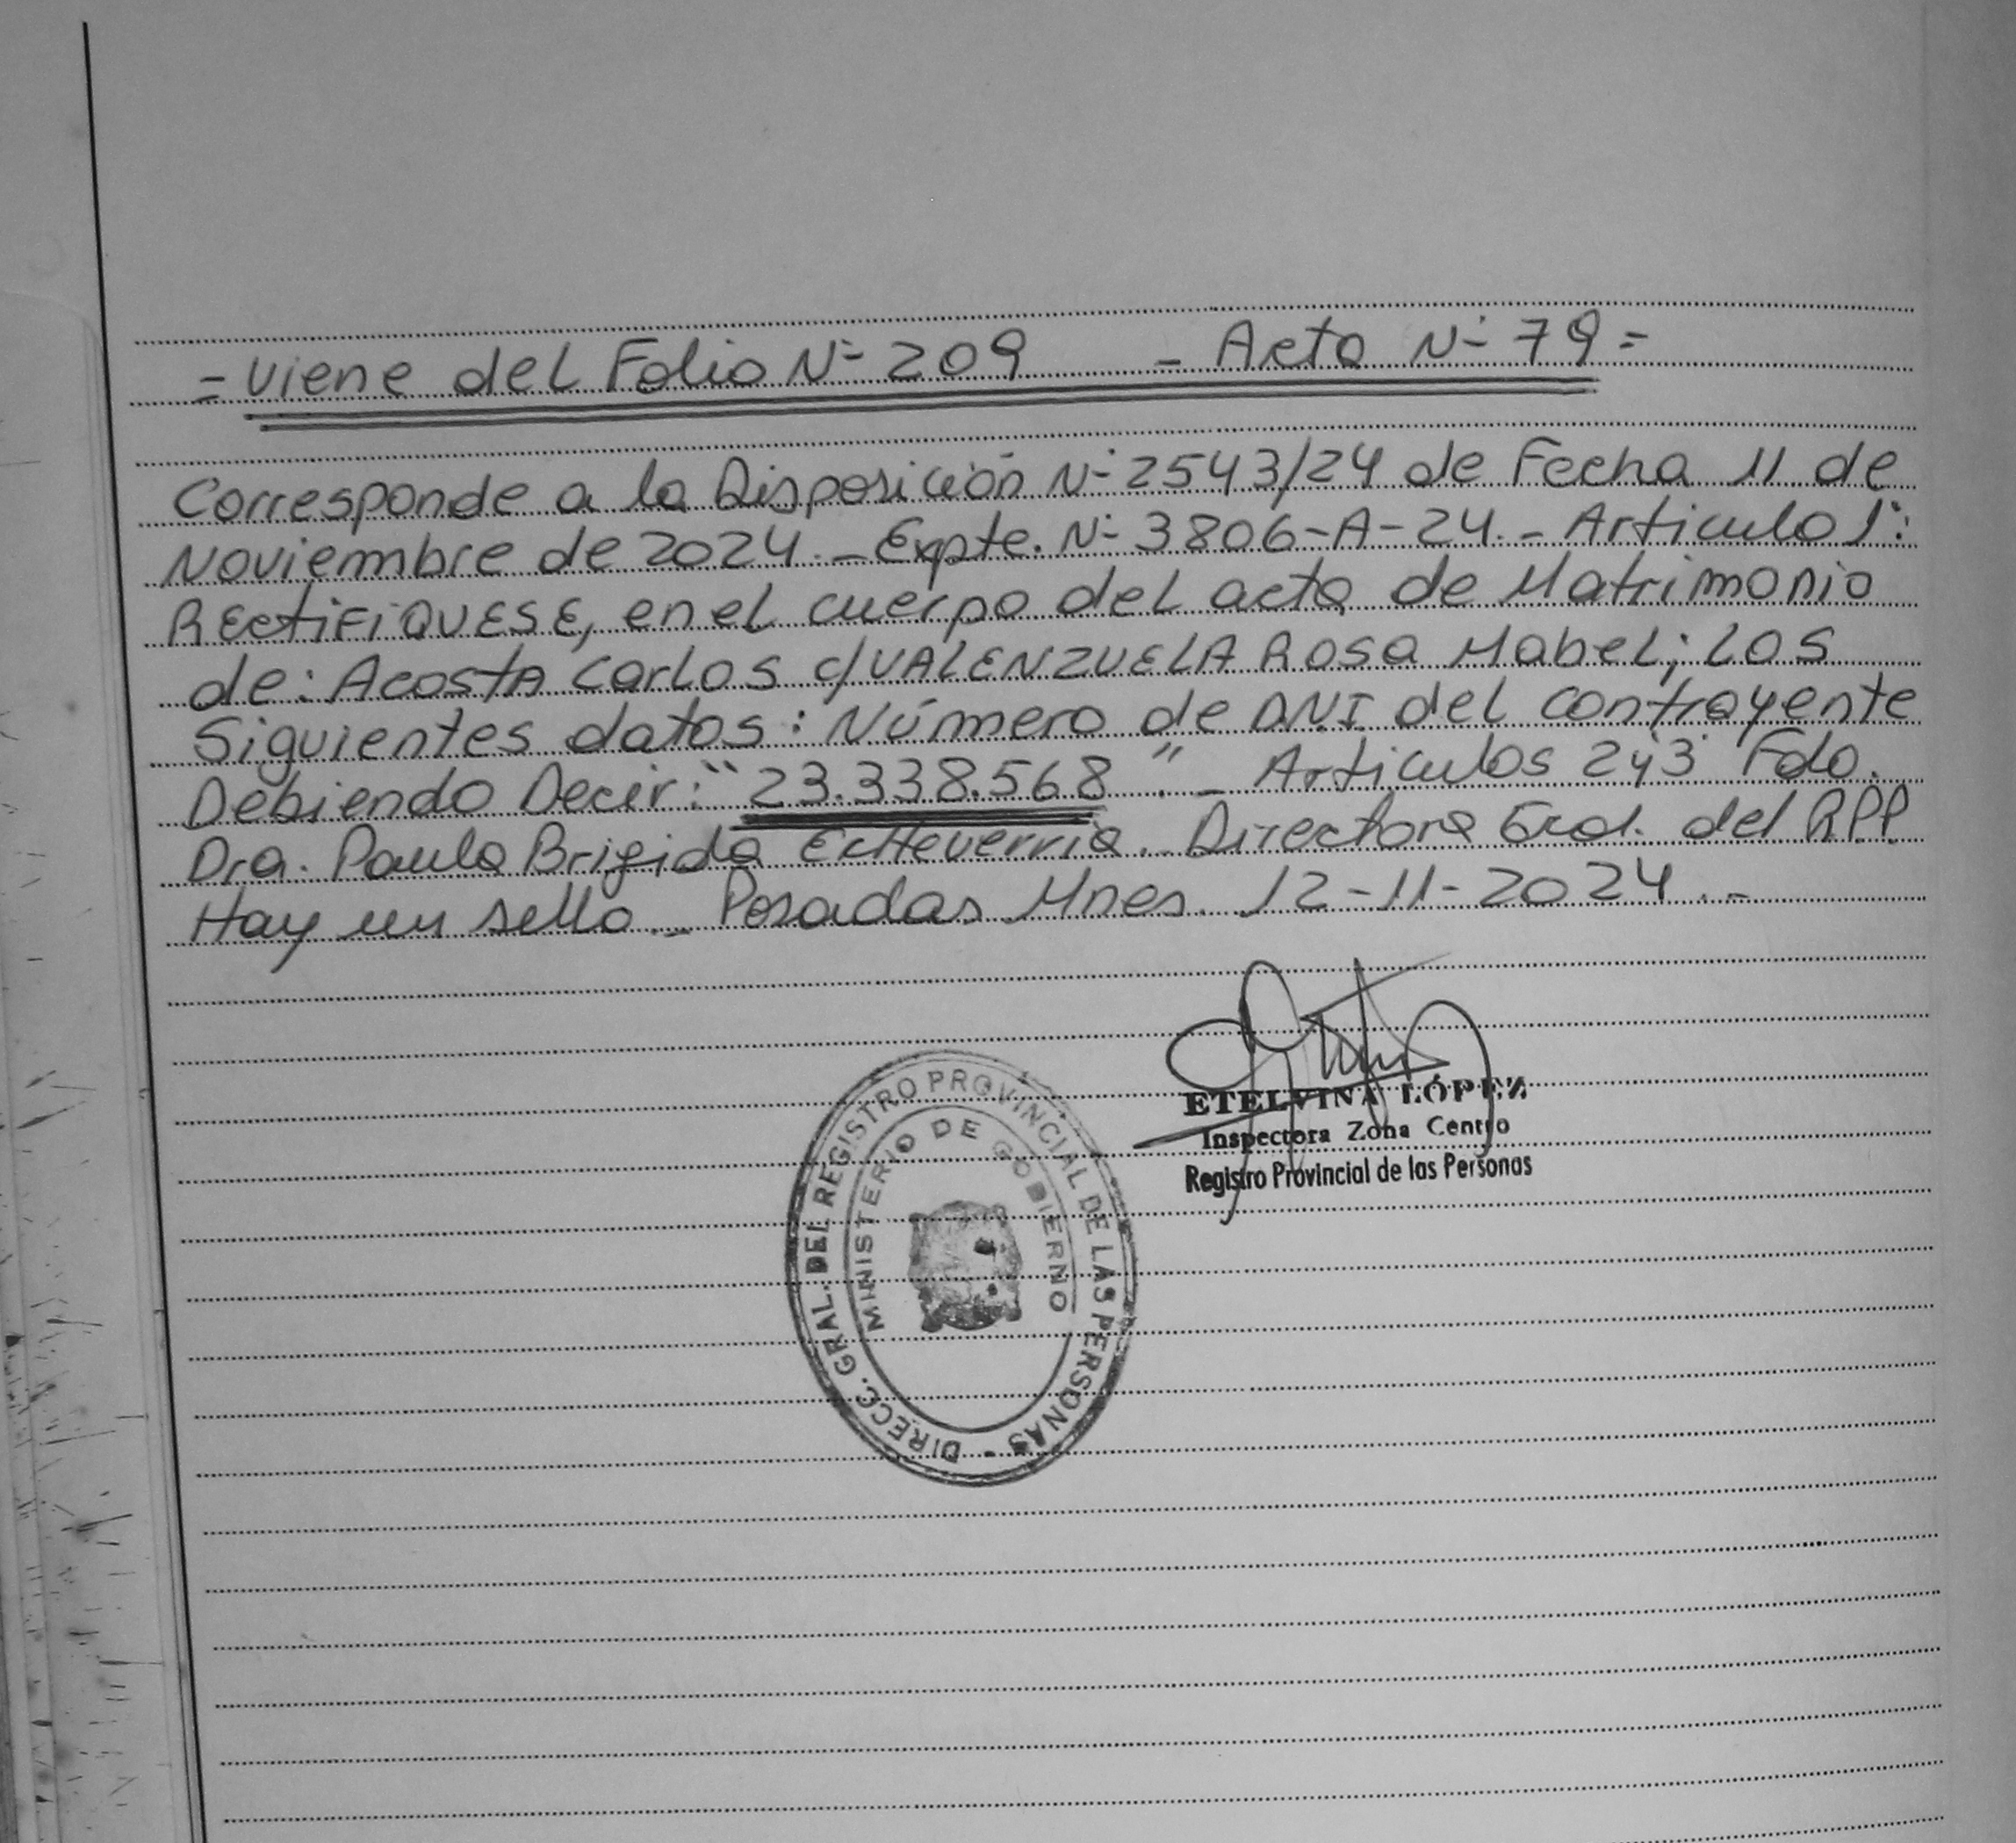 = Viene del Folio N- 209 - Acta N- 79 =
Corresponde a la Disposición N- 2543/24 de Fecha 11 de
Noviembre de 2024.- Expte. N- 3806-A-24.- Articulo 1°:
RECTIFIQUESE, en el cuerpo del acta de Matrimonio
de: Acosta Carlos c/ VALENZUELA Rosa Mabel; Los
Siguientes datos: Número de DNI del contrayente
Debiendo Decir: "23.338.568".- Articulos 2y3 Fdo.
Dra. Paula Brigida Echeverria. Directora Gral. del RPP
Hay un sello.- Posadas Mnes. 12-11-2024.-
ETELVINA LÓPEZ
Inspectora Zona Centro
Registro Provincial de las Personas
DIRECC. GRAL. DEL REGISTRO PROVINCIAL DE LAS PERSONAS -
MINISTERIO DE GOBIERNO